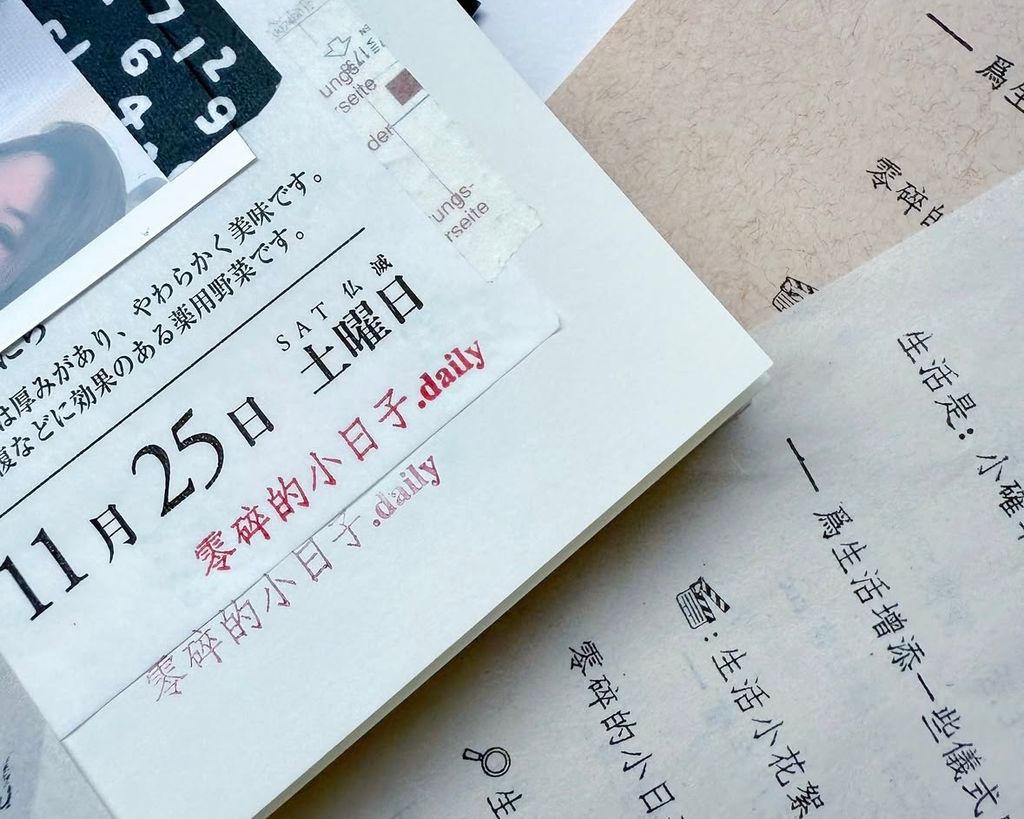 ungs-
rseite
der
ungs-
rseite
は厚みがあり、やわらかく美味です。
復などに効果のある薬用野菜です。
SAT 仏滅
11月25日 土曜日
零碎的小日子.daily
零碎的小日子.daily
一 爲生
零碎的
生活是：小確
一 爲生活增添一些儀式
：生活小花絮
零碎的小日
生